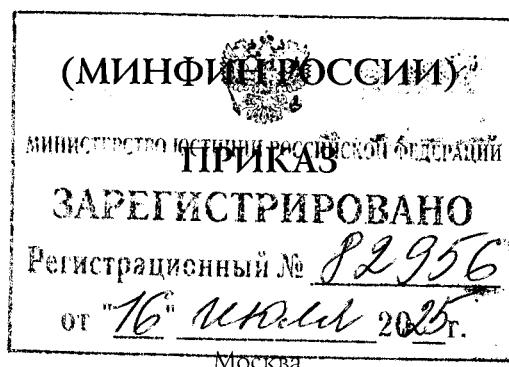 (МИНФИН РОССИИ)
МИНИСТЕРСТВО ЮСТИЦИИ РОССИЙСКОЙ ФЕДЕРАЦИИ
ПРИКАЗ
ЗАРЕГИСТРИРОВАНО
Регистрационный № 82956
от "16" июля 2025г.
Москва